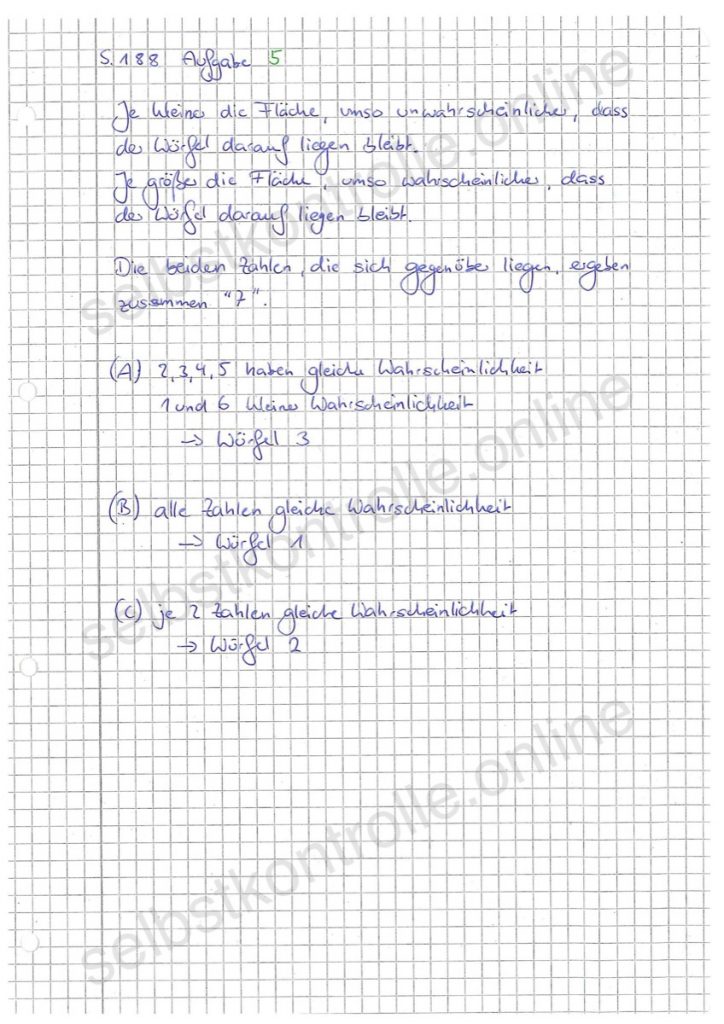 S. 188 Aufgabe 5
Je kleiner die Fläche, umso unwahrscheinlicher, dass
der Würfel darauf liegen bleibt.
Je größer die Fläche, umso wahrscheinlicher, dass
der Würfel darauf liegen bleibt.
Die beiden Zahlen, die sich gegenüber liegen, ergeben
zusammen "7".
(A) 2, 3, 4, 5 haben gleiche Wahrscheinlichkeit
1 und 6 kleine Wahrscheinlichkeit
→ Würfel 3
(B) alle Zahlen gleiche Wahrscheinlichkeit
→ Würfel 1
(C) je 2 Zahlen gleiche Wahrscheinlichkeit
→ Würfel 2
selbstkontrolle.online
selbstkontrolle.online
selbstkontrolle.online